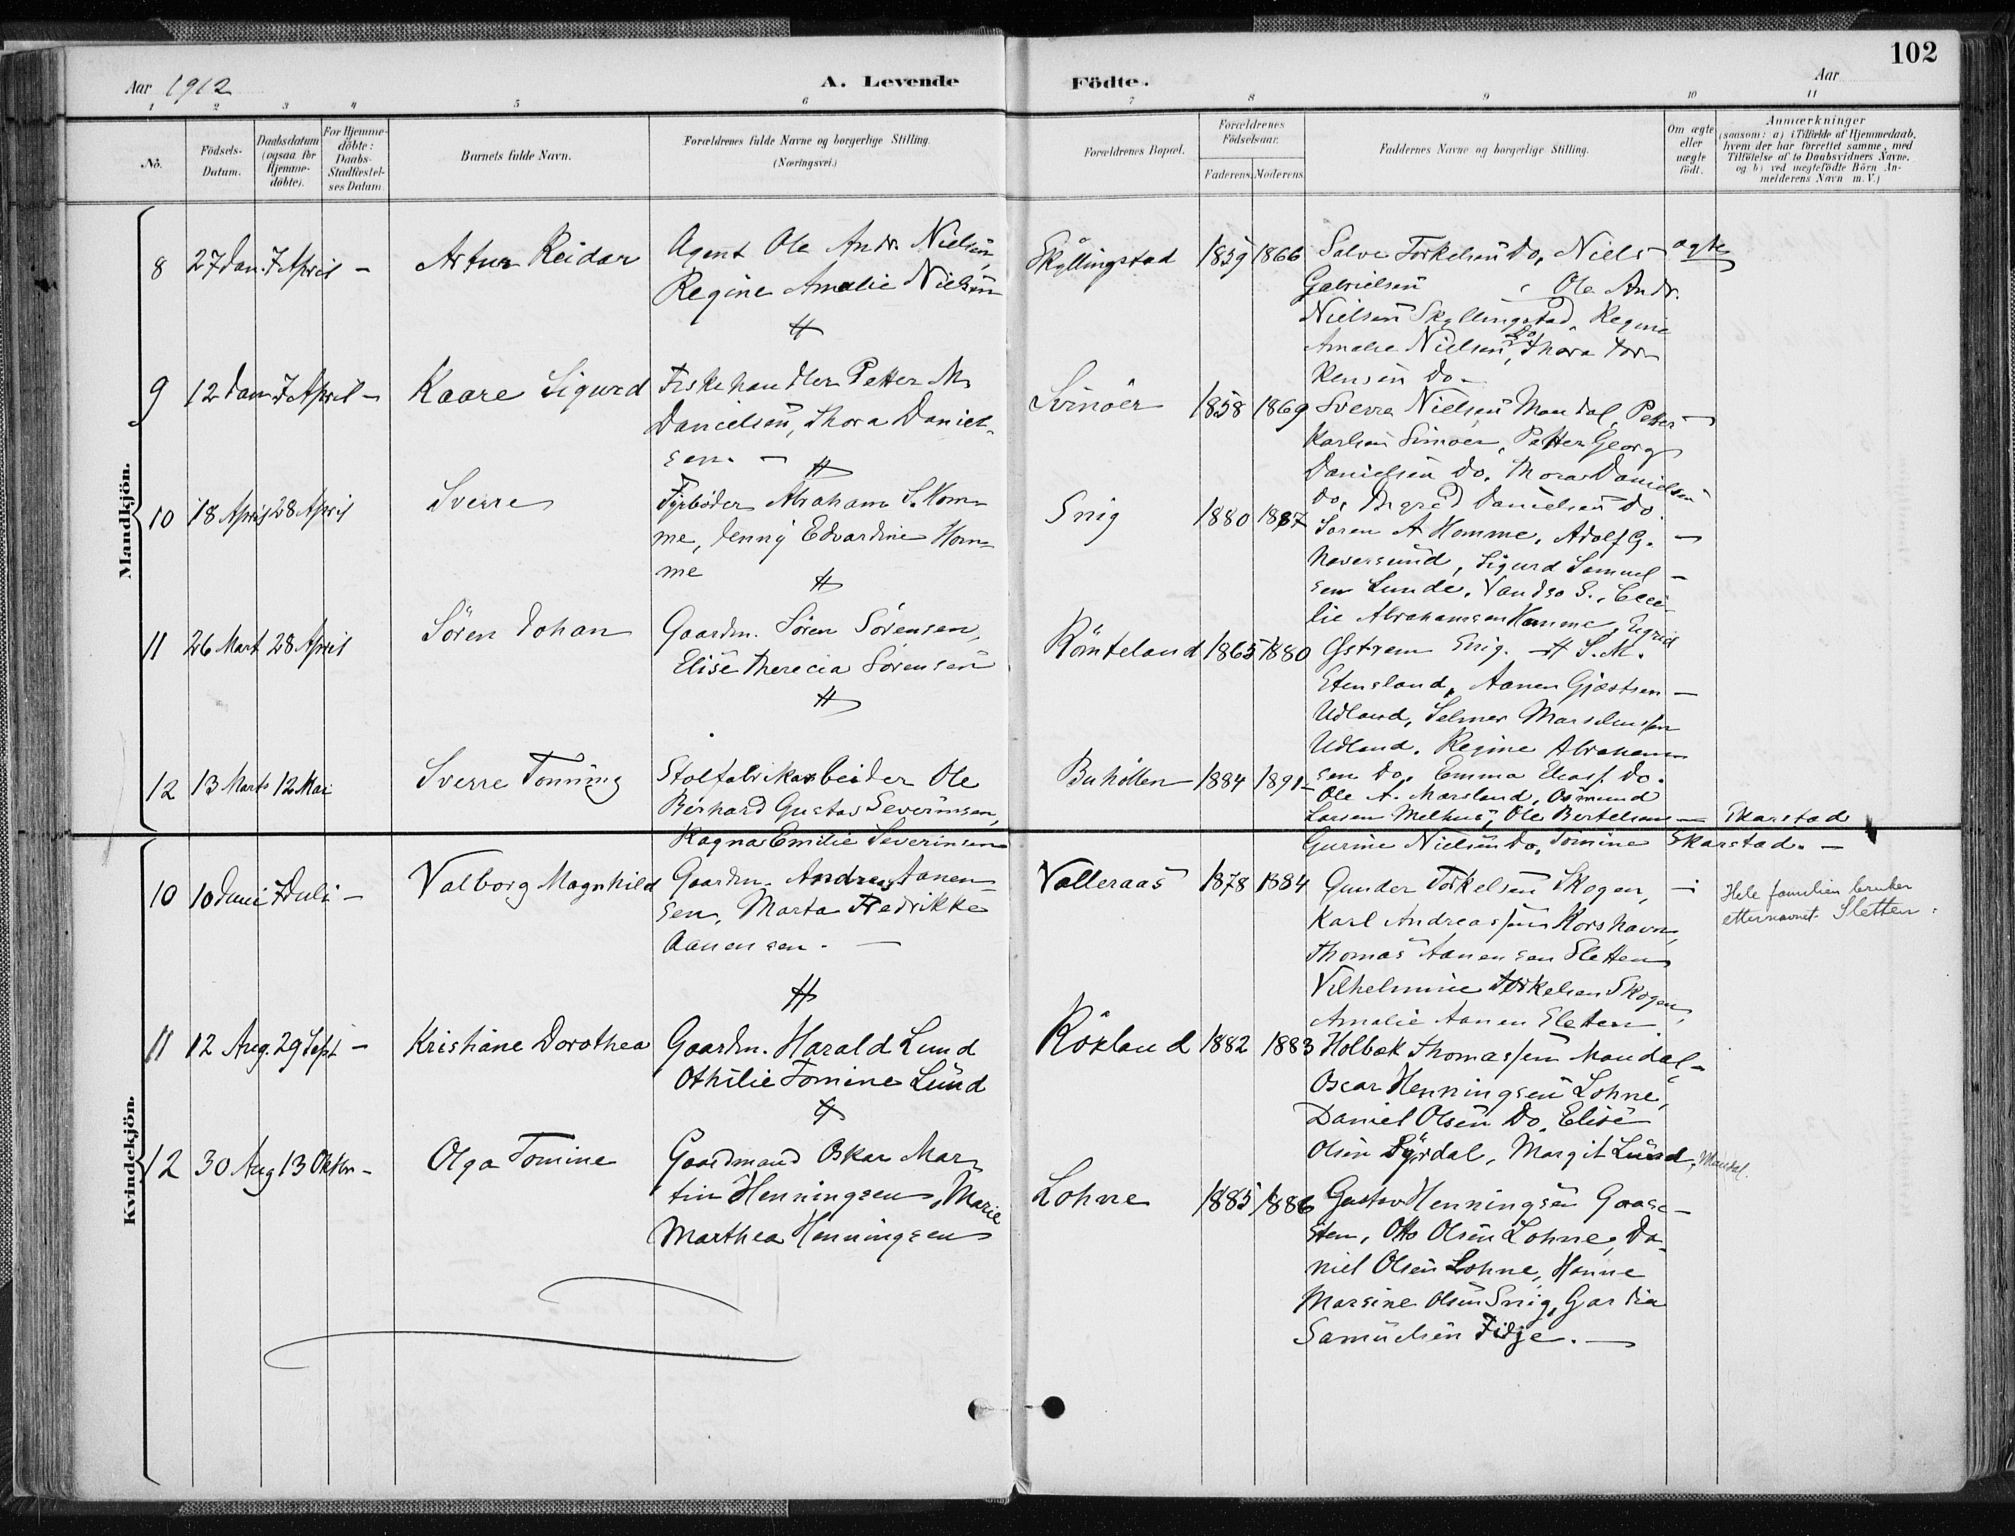 102
Aar 1912
A. Levende Födte.
Aar
1 2 3 4 5 6 7 8 9 10 11
No.
Födsels-Datum.
Daabsdatum (ogsaa for Hjemme-döbte).
For Hjemme-döbte: Daabs-Stadfæstel-ses Datum
Barnets fulde Navn.
Forældrenes fulde Navne og borgerlige Stilling.
(Næringsvei.)
Forældrenes Bopæl.
Forældrenes Födselsaar.
Faderens. Moderens.
Faddernes Navne og borgerlige Stilling.
Om ægte eller uægte födt.
Anmærkninger
(saasom: a) i Tilfælde af Hjemmedaab,
hvem der har forrettet samme, med
Tilföielse af to Daabsvidners Navne,
og b) ved uægtefödte Börn An-
melderens Navn m. V.)
Mandkjön.
8 27 Jan. 7 April – Artur Reidar
Agent Ole Andr. Nielsen,
Regine Amalie Nielsen
Skyllingstad 1859 1866
Salve Torkelsen Do, Niels
Gabrielsen, Ole Andr.
Nielsen Skyllingstad, Regine
Amalie Nielsen Do, Thora Tor
kensen Do –
ægte
9 12 Jan. 7 April – Kaare Sigurd
Fiskehandler Petter M.
Danielsen, Thora Daniel-
sen. –
Svinöer 1858 1869
Sverre Nielsen Mandal, Petter
Karlsen Svinoer, Petter Georg
Danielsen Do, Thora Danielsen
Do, Ingrid Danielsen Do
10 18 April 28 April Sverre
Fyrbøder Abraham S. Hom-
me, Jenny Edvardine Hom-
me
Snig 1880 1887
Soren A Homme, Adolf G.
Naversund, Sigurd Samuel-
sen Lunde, Vandso S., Ceci
lie Abrahamsen Homme, Sigrid
Gstrem Snig.
11 26 Mart 28 April Sören Johan
Gaardm. Sören Sörensen,
Elise Therecia Sörensen
Rönteland 1865 1880
S. M.
Stensland, Aanen Gjæstsen
Udland, Selmer Marselius/sen
Udland, Regine Abraham
sen Do, Emma Elias/. Do.
12 13 Marts 12 Mai Sverre Tonning
Stolfabrikarbeider Ole
Berhard Gustav Severinsen,
Ragna Emilie Severinsen
Buhöllen 1884 1891
Ole A. Marsland, Osmund
Larsen Melhus, Ole Bertelsen – Skarstad
Gurine Nielsen Do, Tomine Skarstad. –
Kvindekjön.
10 10 Juni 7 Juli – Valborg Magnhild
Gaardm. Andreas Aanen-
sen, Marta Fredrikke
Aanensen. –
Valleraas 1878 1884
Gunder Torkelsen Skogen,
Karl Andreas/sen Korshavn,
Thomas Aanensen Sletten
Vilhelmine Torkelsen Skogen,
Amalie Aanen Sletten
Hele familien bruker
etternavnet Sletten.
11 12 Aug. 29 Sept – Kristiane Dorothea
Gaardm. Harald Lund
Othilie Tomine Lund
Rökland 1882 1883
Holbæk Thomas/sen Mandal,
Oscar Henningsen Lohne,
Daniel Olsen Do, Elise
Olsen Syrdal, Margit Lund, Mandal.
12 30 Aug 13 Oktbr – Olga Tomine
Gaardmand Oskar Mar-
tin Henningsen, Marie
Marthea Henningsen
Lohne 1885 1886
Gustav Henningsen Gaase-
sten, Otto Olsen Lohne, Da-
niel Olsen Lohne, Hanne
Marsine Olsen Snig, Gardia
Samuelsen Fidje. –